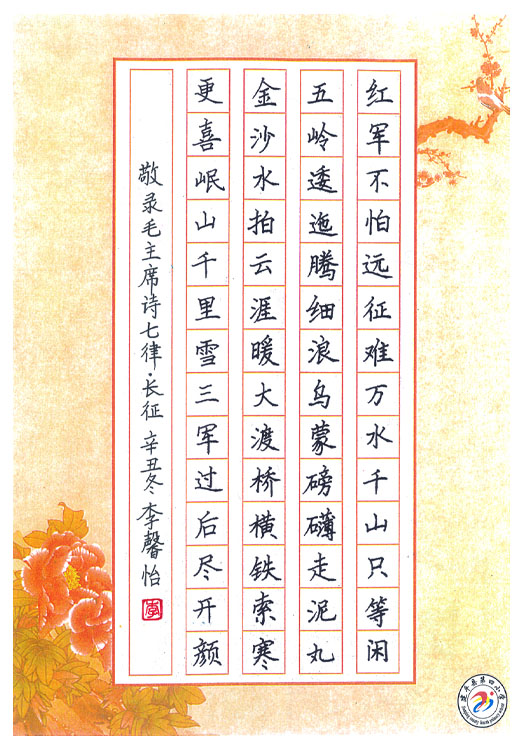 红军不怕远征难万水千山只等闲
五岭逶迤腾细浪乌蒙磅礴走泥丸
金沙水拍云涯暖大渡桥横铁索寒
更喜岷山千里雪三军过后尽开颜
敬录毛主席诗七律·长征 辛丑冬 李馨怡